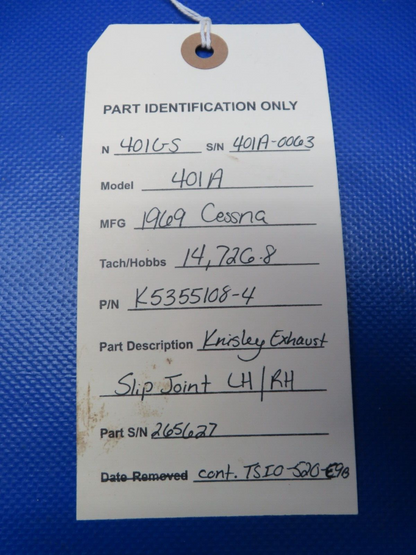 PART IDENTIFICATION ONLY
N 401GS S/N 401A-0063
Model 401A
MFG 1969 Cessna
Tach/Hobbs 14,726.8
P/N K5355108-4
Part Description Knisley Exhaust
Slip Joint LH/RH
Part S/N 265627
Date Removed cont. TSIO-520-E9B